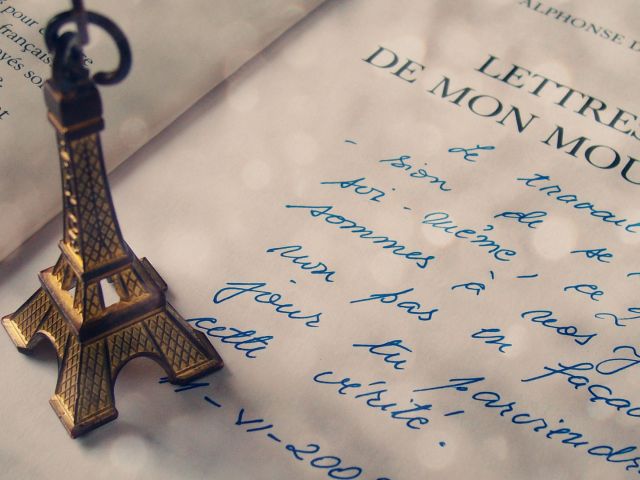 pour
française
oyés son
ALPHONSE
LETTRES
DE MON MOU
Le travail
- sion de se
soi-même, ce
sommes à nos
non pas en façad
jour tu parviendr
cette vérité.
-VI-200